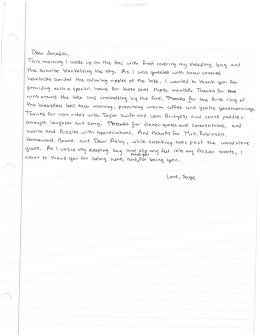 Dear Amelia,
This morning I woke up on the lac with frost covering my sleeping bag and
the sunrise blanketing the sky. As I was greeted with snow covered
hemlocks amidst the calming ripples of the lake, I wanted to thank you for
providing such a special home for those past three months. Thanks for
runs around the lake and crosswording by the fire. Thanks for the first ring of
the breakfast bell each morning, promising warm coffee and gentle goodmornings.
Thanks for van rides with Taylor Swift and Leon Bridges, and canoe paddles
amongst laughter and song. Thanks for dinner quotes and conversations, and
warm and fuzzies with appreciations. And thanks for Mrs. Robinson,
Homeward Bound, and Dear Abby, while sneaking past the woodstove
glass. As I unzip my sleeping bag and slip my feet into my frozen boots, I
want to thank you for being here, and for being you.
Love, Sage